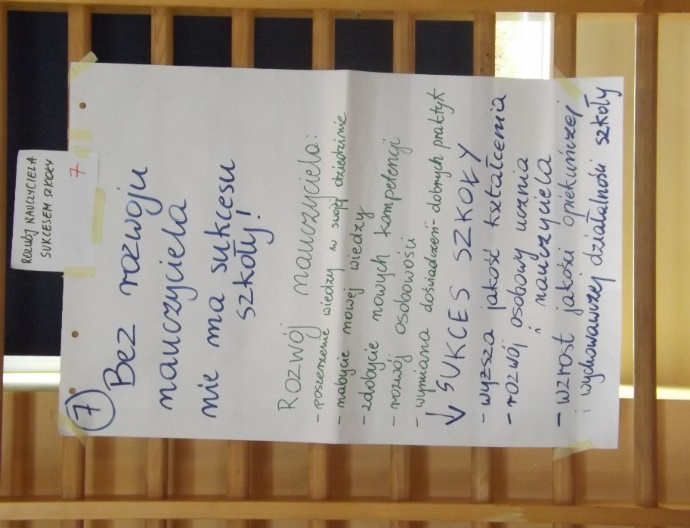 ROZWÓJ NAUCZYCIELA
SUKCESEM SZKOŁY
7
7
Bez rozwoju
nauczyciela
nie ma sukcesu
szkoły!
Rozwój nauczyciela:
- poszerzenie wiedzy w swojej dziedzinie
- nabycie nowej wiedzy
- zdobycie nowych kompetencji
- rozwój osobowości
- wymiana doświadczeń - dobrych praktyk
↓ SUKCES SZKOŁY
- wyższa jakość kształcenia
- rozwój osobowy ucznia
i nauczyciela
- wzrost jakości opiekuńczej
i wychowawczej działalności szkoły